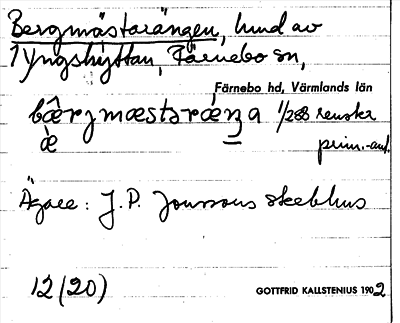 Bergmästarängen, hmd av
1 Yngshyttan, Färnebo sn,
Färnebo hd, Värmlands län
bærjmæstaræŋa 1/288 renskr
æ̀ prim.-ant.
Ägare: J. P. Jonssons sterbhus
12 (20)
GOTTFRID KALLSTENIUS 1902